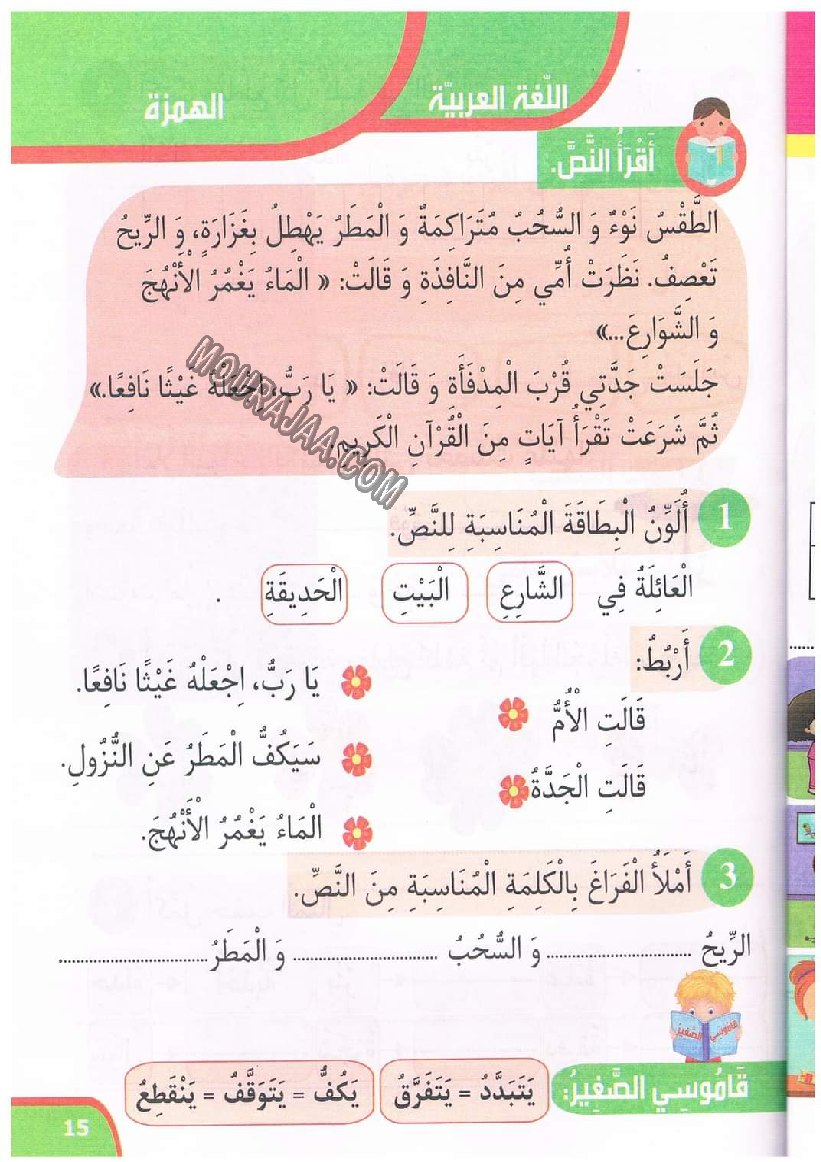 اللّغة العربيّة
الهمزة
أَقْرَأُ النَّصَّ.
الطَّقْسُ نَوْءٌ وَ السُّحُبُ مُتَرَاكِمَةٌ وَ الْمَطَرُ يَهْطِلُ بِغَزَارَةٍ، وَ الرِّيحُ
تَعْصِفُ. نَظَرَتْ أُمِّي مِنَ النَّافِذَةِ وَ قَالَتْ: « الْمَاءُ يَغْمُرُ الْأَنْهُجَ
وَ الشَّوَارِعَ...»
جَلَسَتْ جَدَّتِي قُرْبَ الْمِدْفَأَةِ وَ قَالَتْ: « يَا رَبُّ، اِجْعَلْهُ غَيْثًا نَافِعًا.»
ثُمَّ شَرَعَتْ تَقْرَأُ آيَاتٍ مِنَ الْقُرْآنِ الْكَرِيمِ.
MOURAJAA.COM
1 أُلَوِّنُ الْبِطَاقَةَ الْمُنَاسِبَةِ لِلنَّصِّ.
الْعَائِلَةُ فِي الشَّارِعِ الْبَيْتِ الْحَدِيقَةِ .
2 أَرْبُطُ:
يَا رَبُّ، اِجْعَلْهُ غَيْثًا نَافِعًا.
قَالَتِ الْأُمُّ
سَيَكُفُّ الْمَطَرُ عَنِ النُّزُولِ.
قَالَتِ الْجَدَّةُ
الْمَاءُ يَغْمُرُ الْأَنْهُجَ.
3 أَمْلَأُ الْفَرَاغَ بِالْكَلِمَةِ الْمُنَاسِبَةِ مِنَ النَّصِّ.
الرِّيحُ ........................ وَ السُّحُبُ ........................ وَ الْمَطَرُ ........................
قاموسي الصّغير
قَامُوسِي الصَّغِيرُ: يَتَبَدَّدُ = يَتَفَرَّقُ يَكُفُّ = يَتَوَقَّفُ = يَنْقَطِعُ
15